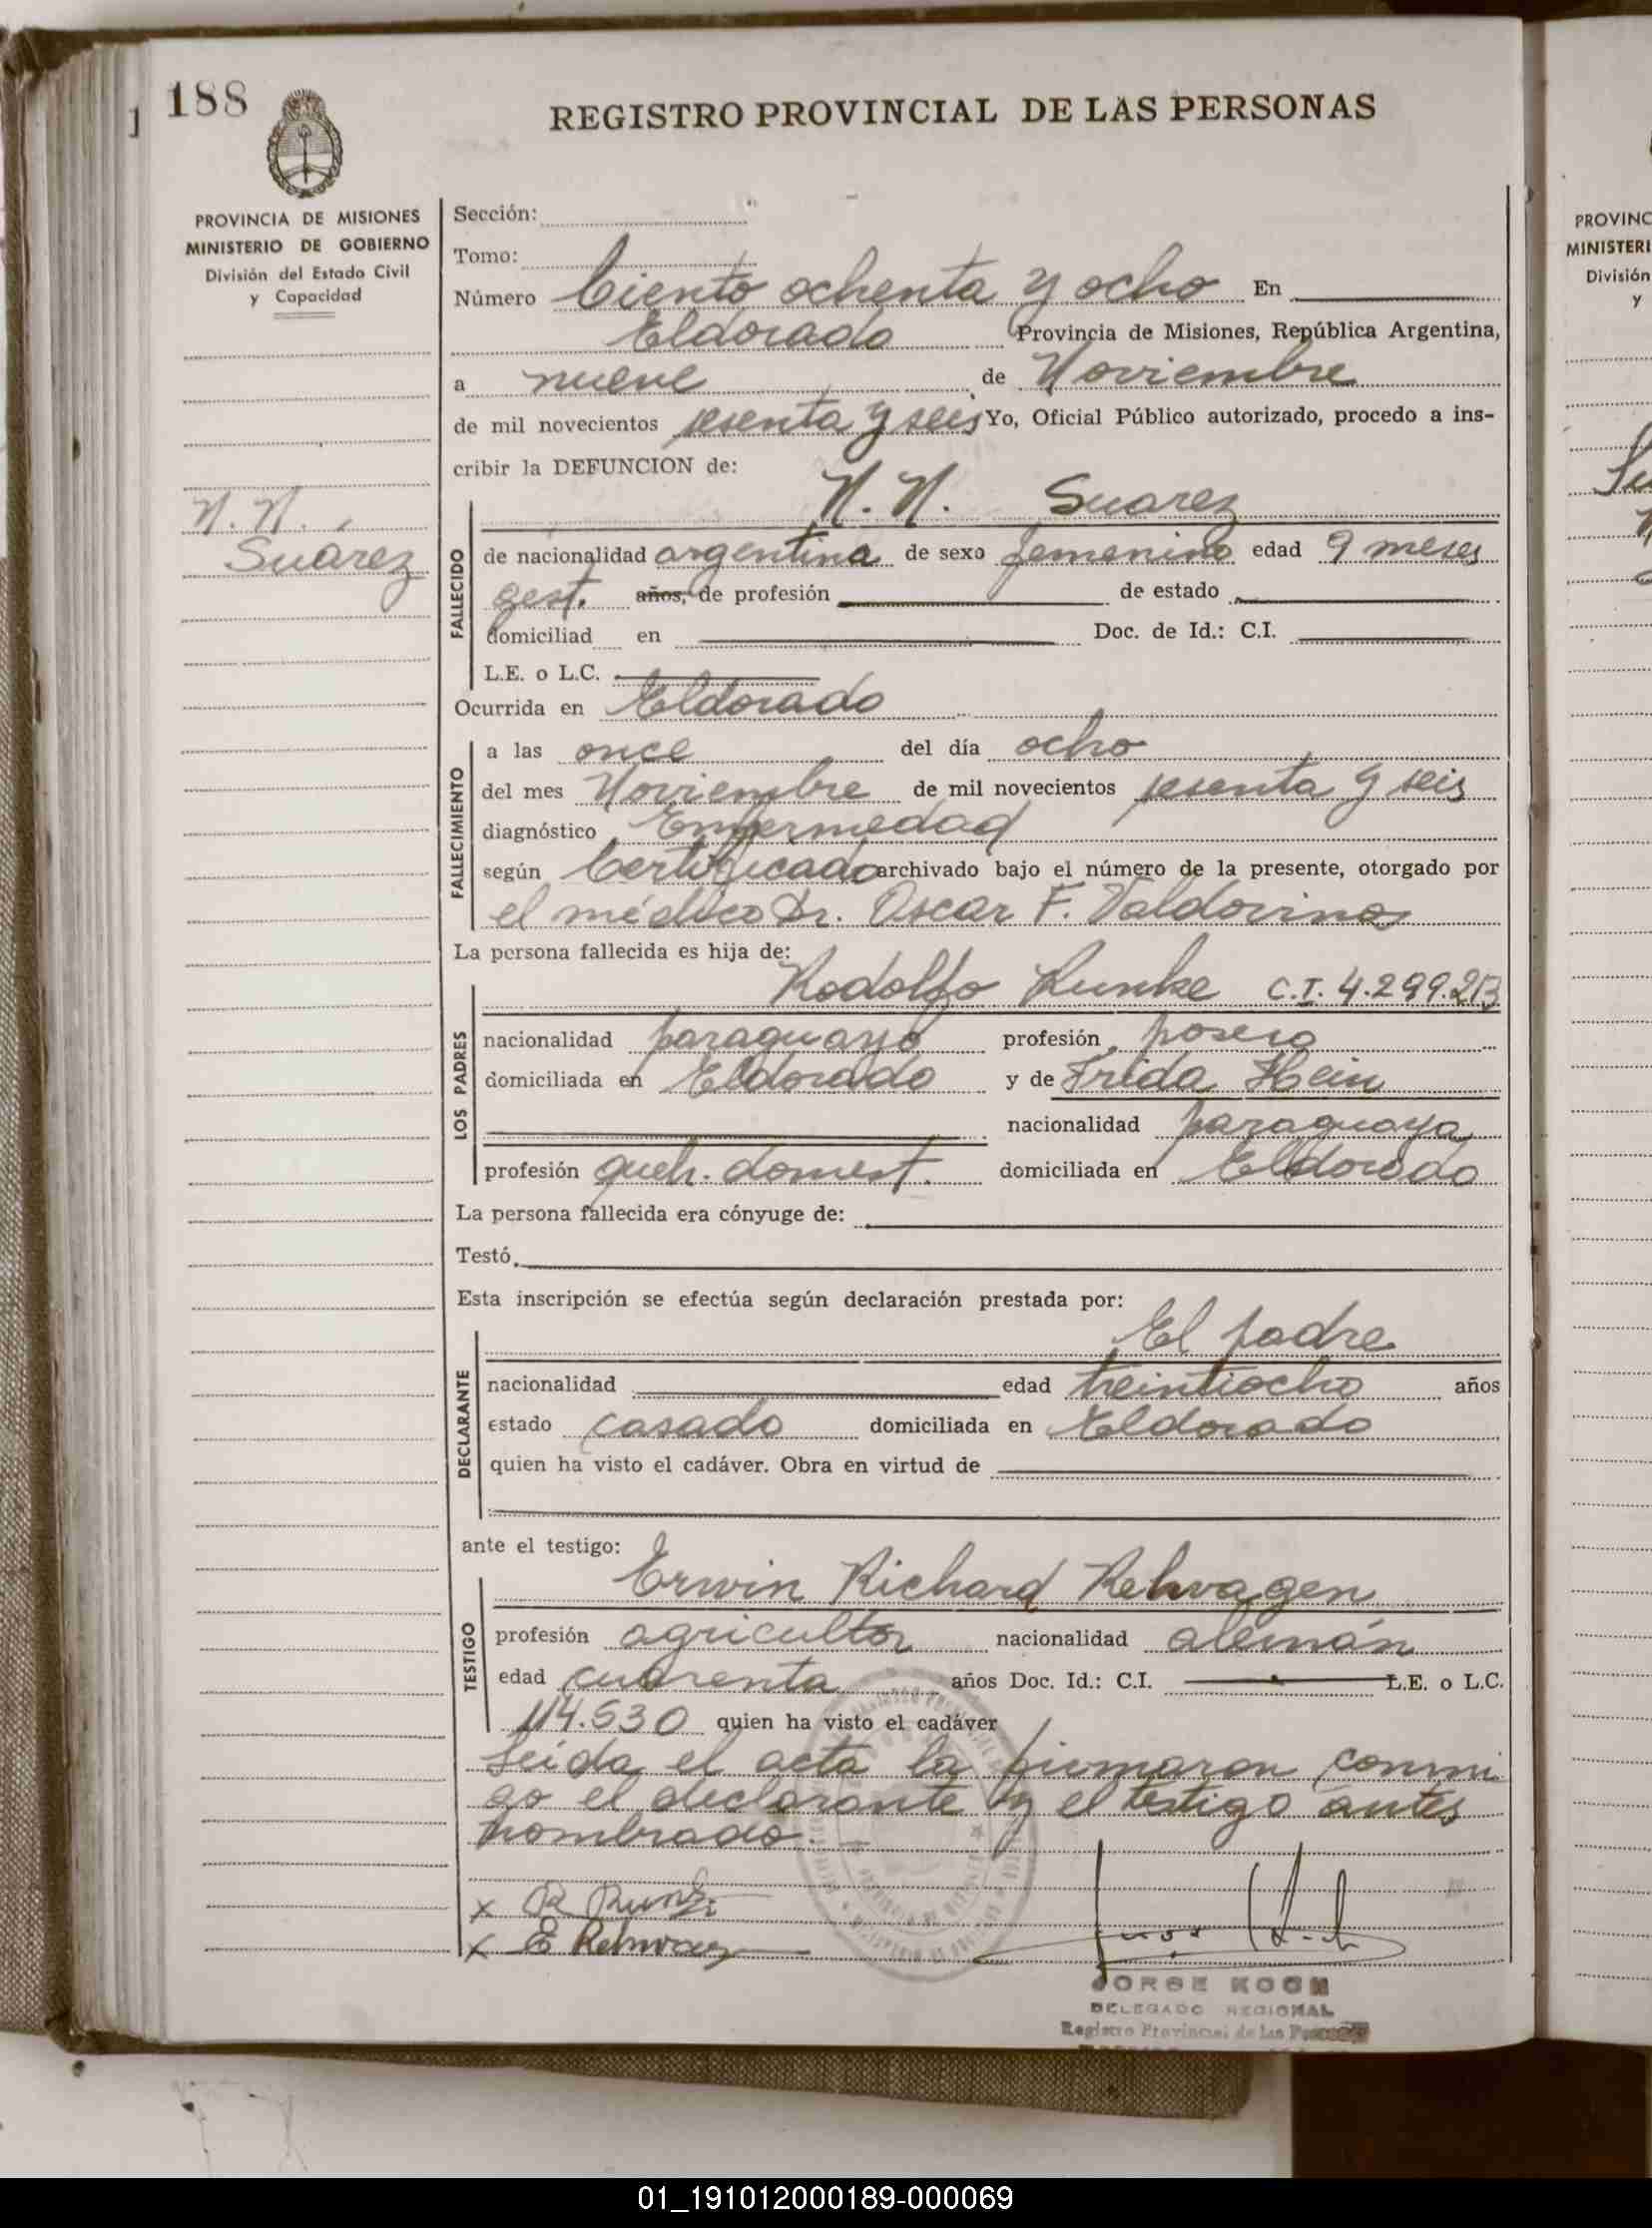 188
1
REGISTRO PROVINCIAL DE LAS PERSONAS
PROVINCIA DE MISIONES
MINISTERIO DE GOBIERNO
División del Estado Civil
y Capacidad
N.N.
Suárez
Sección:
Tomo:
Número Ciento ochenta y ocho En
Eldorado Provincia de Misiones, República Argentina,
a nueve de Noviembre
de mil novecientos sesenta y seis Yo, Oficial Público autorizado, procedo a ins-
cribir la DEFUNCION de:
N.N. Suarez
FALLECIDO
de nacionalidad argentina de sexo femenino edad 9 meses
gest. años, de profesión de estado
domiciliad en Doc. de Id.: C.I.
L.E. o L.C.
Ocurrida en Eldorado
FALLECIMIENTO
a las once del día ocho
del mes Noviembre de mil novecientos sesenta y seis
diagnóstico Enfermedad
según Certificado archivado bajo el número de la presente, otorgado por
el médico Dr. Oscar F. Valdovinos
La persona fallecida es hija de:
Rodolfo Runke C.I. 4.299.213
LOS PADRES
nacionalidad paraguayo profesión posero
domiciliada en Eldorado y de Frida Hein
nacionalidad paraguaya
profesión queh. domest. domiciliada en Eldorado
La persona fallecida era cónyuge de:
Testó
Esta inscripción se efectúa según declaración prestada por:
El padre
DECLARANTE
nacionalidad edad treintiocho años
estado casado domiciliada en Eldorado
quien ha visto el cadáver. Obra en virtud de
ante el testigo:
Erwin Richard Rehwagen
TESTIGO
profesión agricultor nacionalidad alemán
edad cuarenta años Doc. Id.: C.I. L.E. o L.C.
114.530 quien ha visto el cadáver
Leida el acta la firmaron conmi
go el declarante y el testigo antes
nombrado. -
x R Runke
x E Rehwagen
JORGE KOCH
DELEGADO REGIONAL
Registro Provincial de las Personas
PROVINC
MINISTERI
División
y
01_191012000189-000069